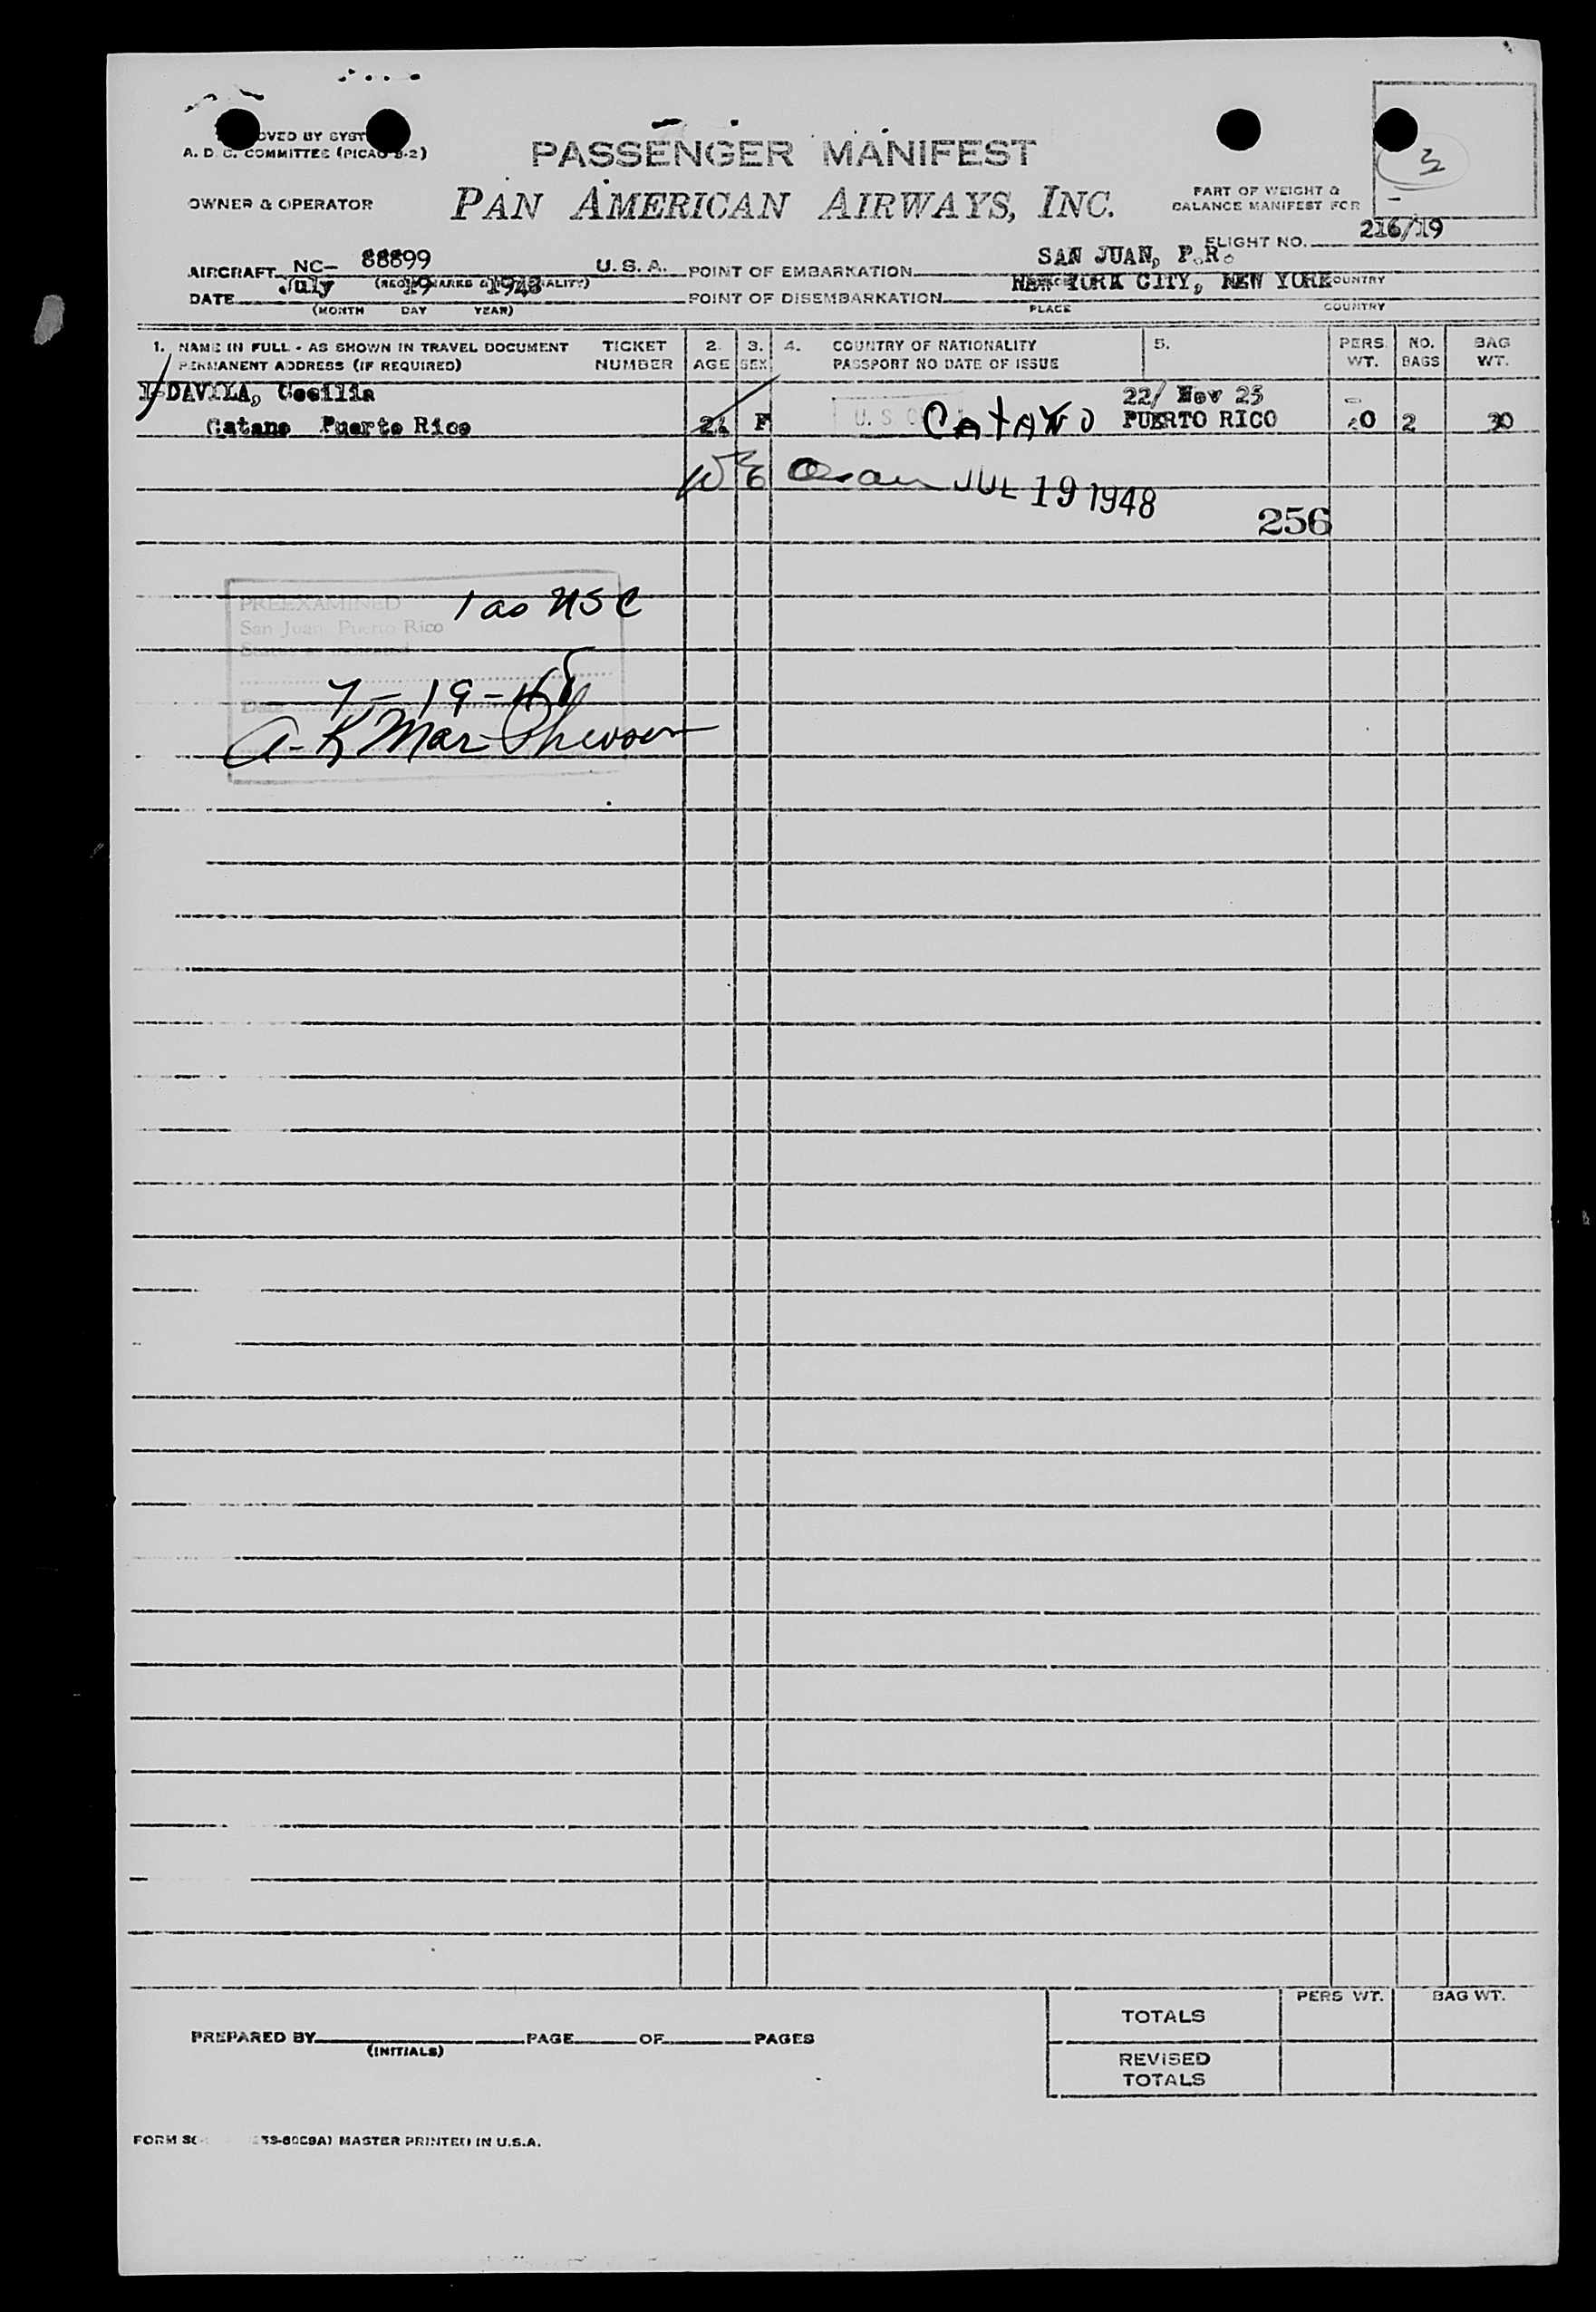 OVED BY SYST
A. D. C. COMMITTEE (PICAO B-2)
3
PASSENGER MANIFEST
OWNER & OPERATOR
PAN AMERICAN AIRWAYS, INC.
PART OF WEIGHT &
BALANCE MANIFEST FOR
FLIGHT NO. 216/19
AIRCRAFT NC- 88899 U. S. A. POINT OF EMBARKATION SAN JUAN, P.R.
DATE July 19 1948 POINT OF DISEMBARKATION NEW YORK CITY, NEW YORK COUNTRY
(MONTH DAY YEAR) PLACE COUNTRY
1. NAME IN FULL - AS SHOWN IN TRAVEL DOCUMENT TICKET 2. 3. 4. COUNTRY OF NATIONALITY 5. PERS. NO. BAG
PERMANENT ADDRESS (IF REQUIRED) NUMBER AGE SEX PASSPORT NO DATE OF ISSUE WT. BAGS WT.
1-DAVILA, Cecilia 22/ Nov 25
Catano Puerto Rico F U. S CATANO PUERTO RICO 2 30
JUL 19 1948
256
PREEXAMINED 1 as USC
San Juan Puerto Rico
Date 7-19-48
PERS WT. BAG WT.
TOTALS
PREPARED BY PAGE OF PAGES
(INITIALS)
REVISED
TOTALS
FORM MASTER PRINTED IN U.S.A.